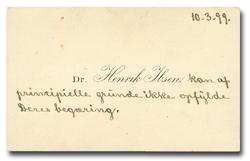 10-3-99.
Dr. Henrik Ibsen kan af
principielle grunde ikke opfylde
Deres begæring.